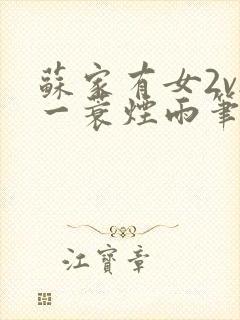 蘇家有女2v
一蓑煙雨筆
江寶章